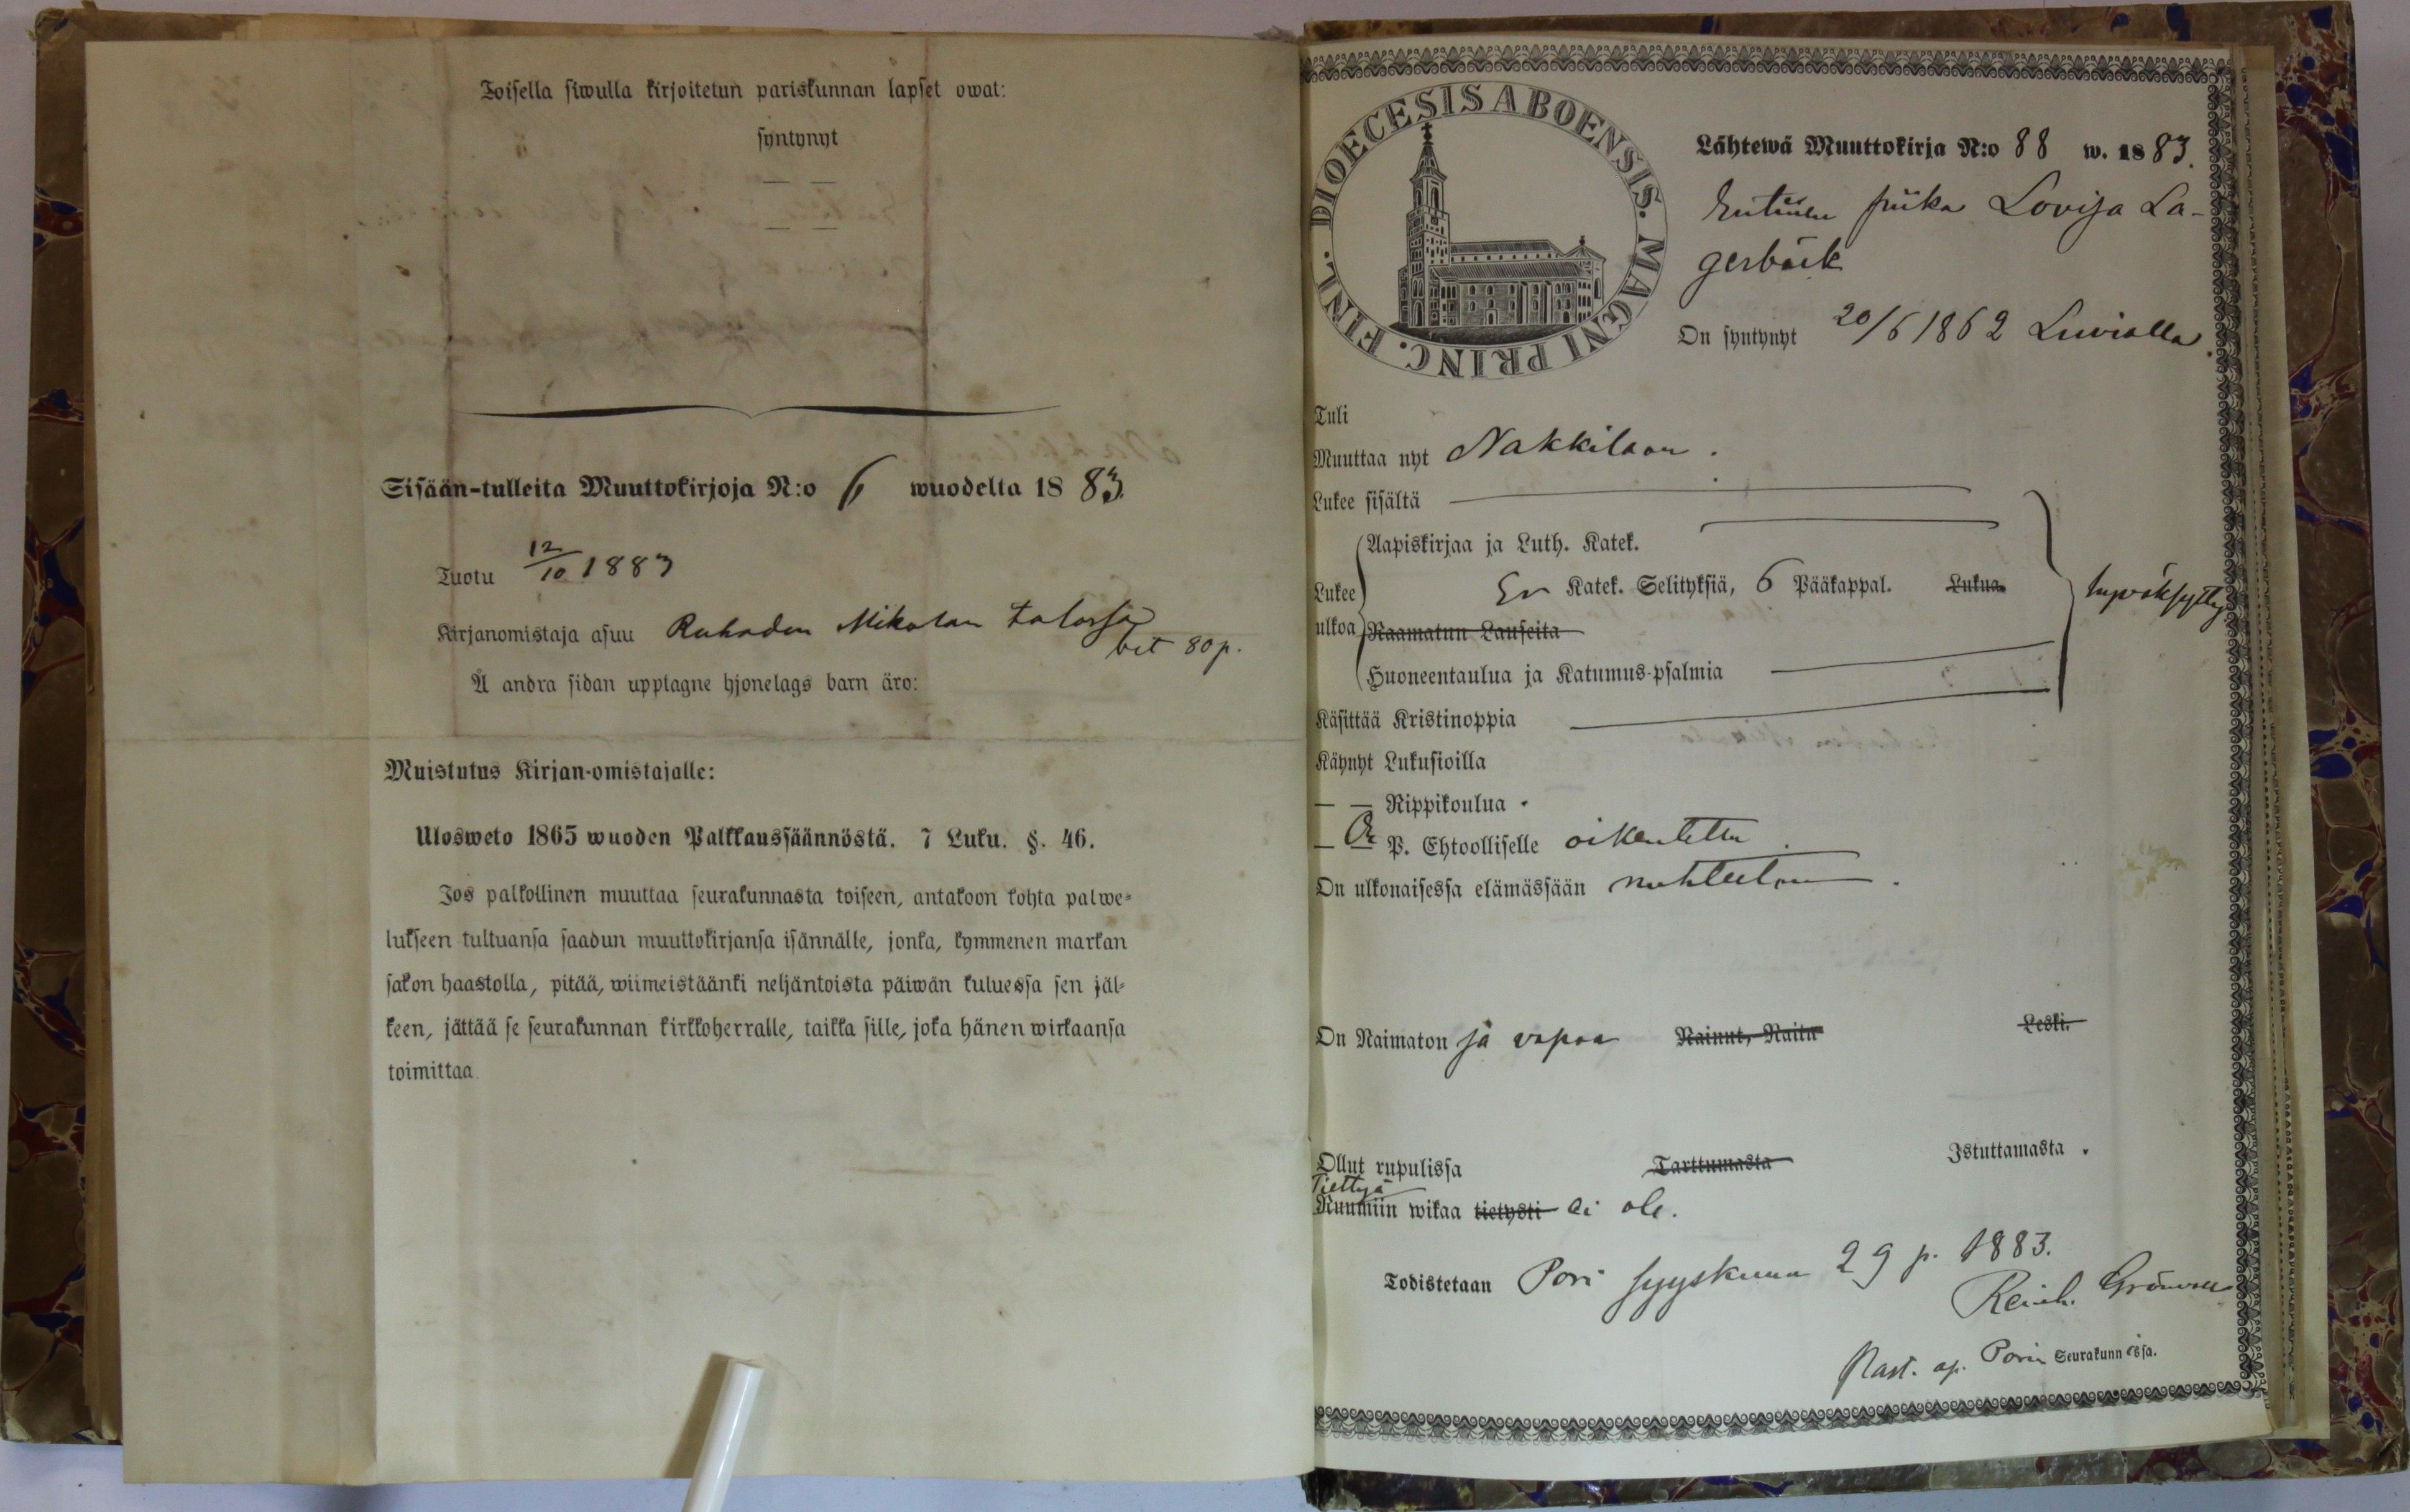 Toisella siwulla kirjoitetun pariskunnan lapset owat:
syntynyt
— —
— —
Sisään-tulleita Muuttokirjoja N:o 6 wuodelta 1883.
Tuotu 12/10 1883
Kirjanomistaja asuu Ruhaden Mikolan talossa
bet 80 p.
Å andra sidan upptagne hjonelags barn äro:
Muistutus Kirjan-omistajalle:
Ulosweto 1865 wuoden Palkkaussäännöstä. 7 Luku. §. 46.
Jos palkollinen muuttaa seurakunnasta toiseen, antakoon kohta palwe-
lukseen tultuansa saadun muuttokirjansa isännälle, jonka, kymmenen markan
sakon haastolla, pitää, wiimeistäänki neljäntoista päiwän kuluessa sen jäl-
keen, jättää se seurakunnan kirkkoherralle, taikka sille, joka hänen wirkaansa
toimittaa.
DIOECESIS ABOENSIS. MAGNI PRINC. FINL.
Lähtewä Muuttokirja N:o 88 w. 1883.
Entinen piika Lovisa La-
gerbäck
On syntynyt 20/6 1862 Luvialla.
Tuli
Muuttaa nyt Nakkilaan.
Lukee sisältä
Aapiskirjaa ja Luth. Katek.
Lukee ulkoa
Katek. Selityksiä, 6 Pääkappal. Lukua.
hyväksytty
Raamatun Lauseita
Huoneentaulua ja Katumus-psalmia
Käsittää Kristinoppia
Käynyt Lukusioilla
— — Rippikoulua
— On P. Ehtoolliselle oikeutettu.
On ulkonaisessa elämässään nuhteeton.
On Naimaton ja vapaa Nainut, Naitu Leski.
Ollut rupulissa Tarttumasta Istuttamasta.
Tiettyä
Ruumiin wikaa tietysti ei ole.
Todistetaan Pori syyskuun 29 p. 1883.
Reinh. Grönvall
Past. ap. Porin Seurakunnissa.